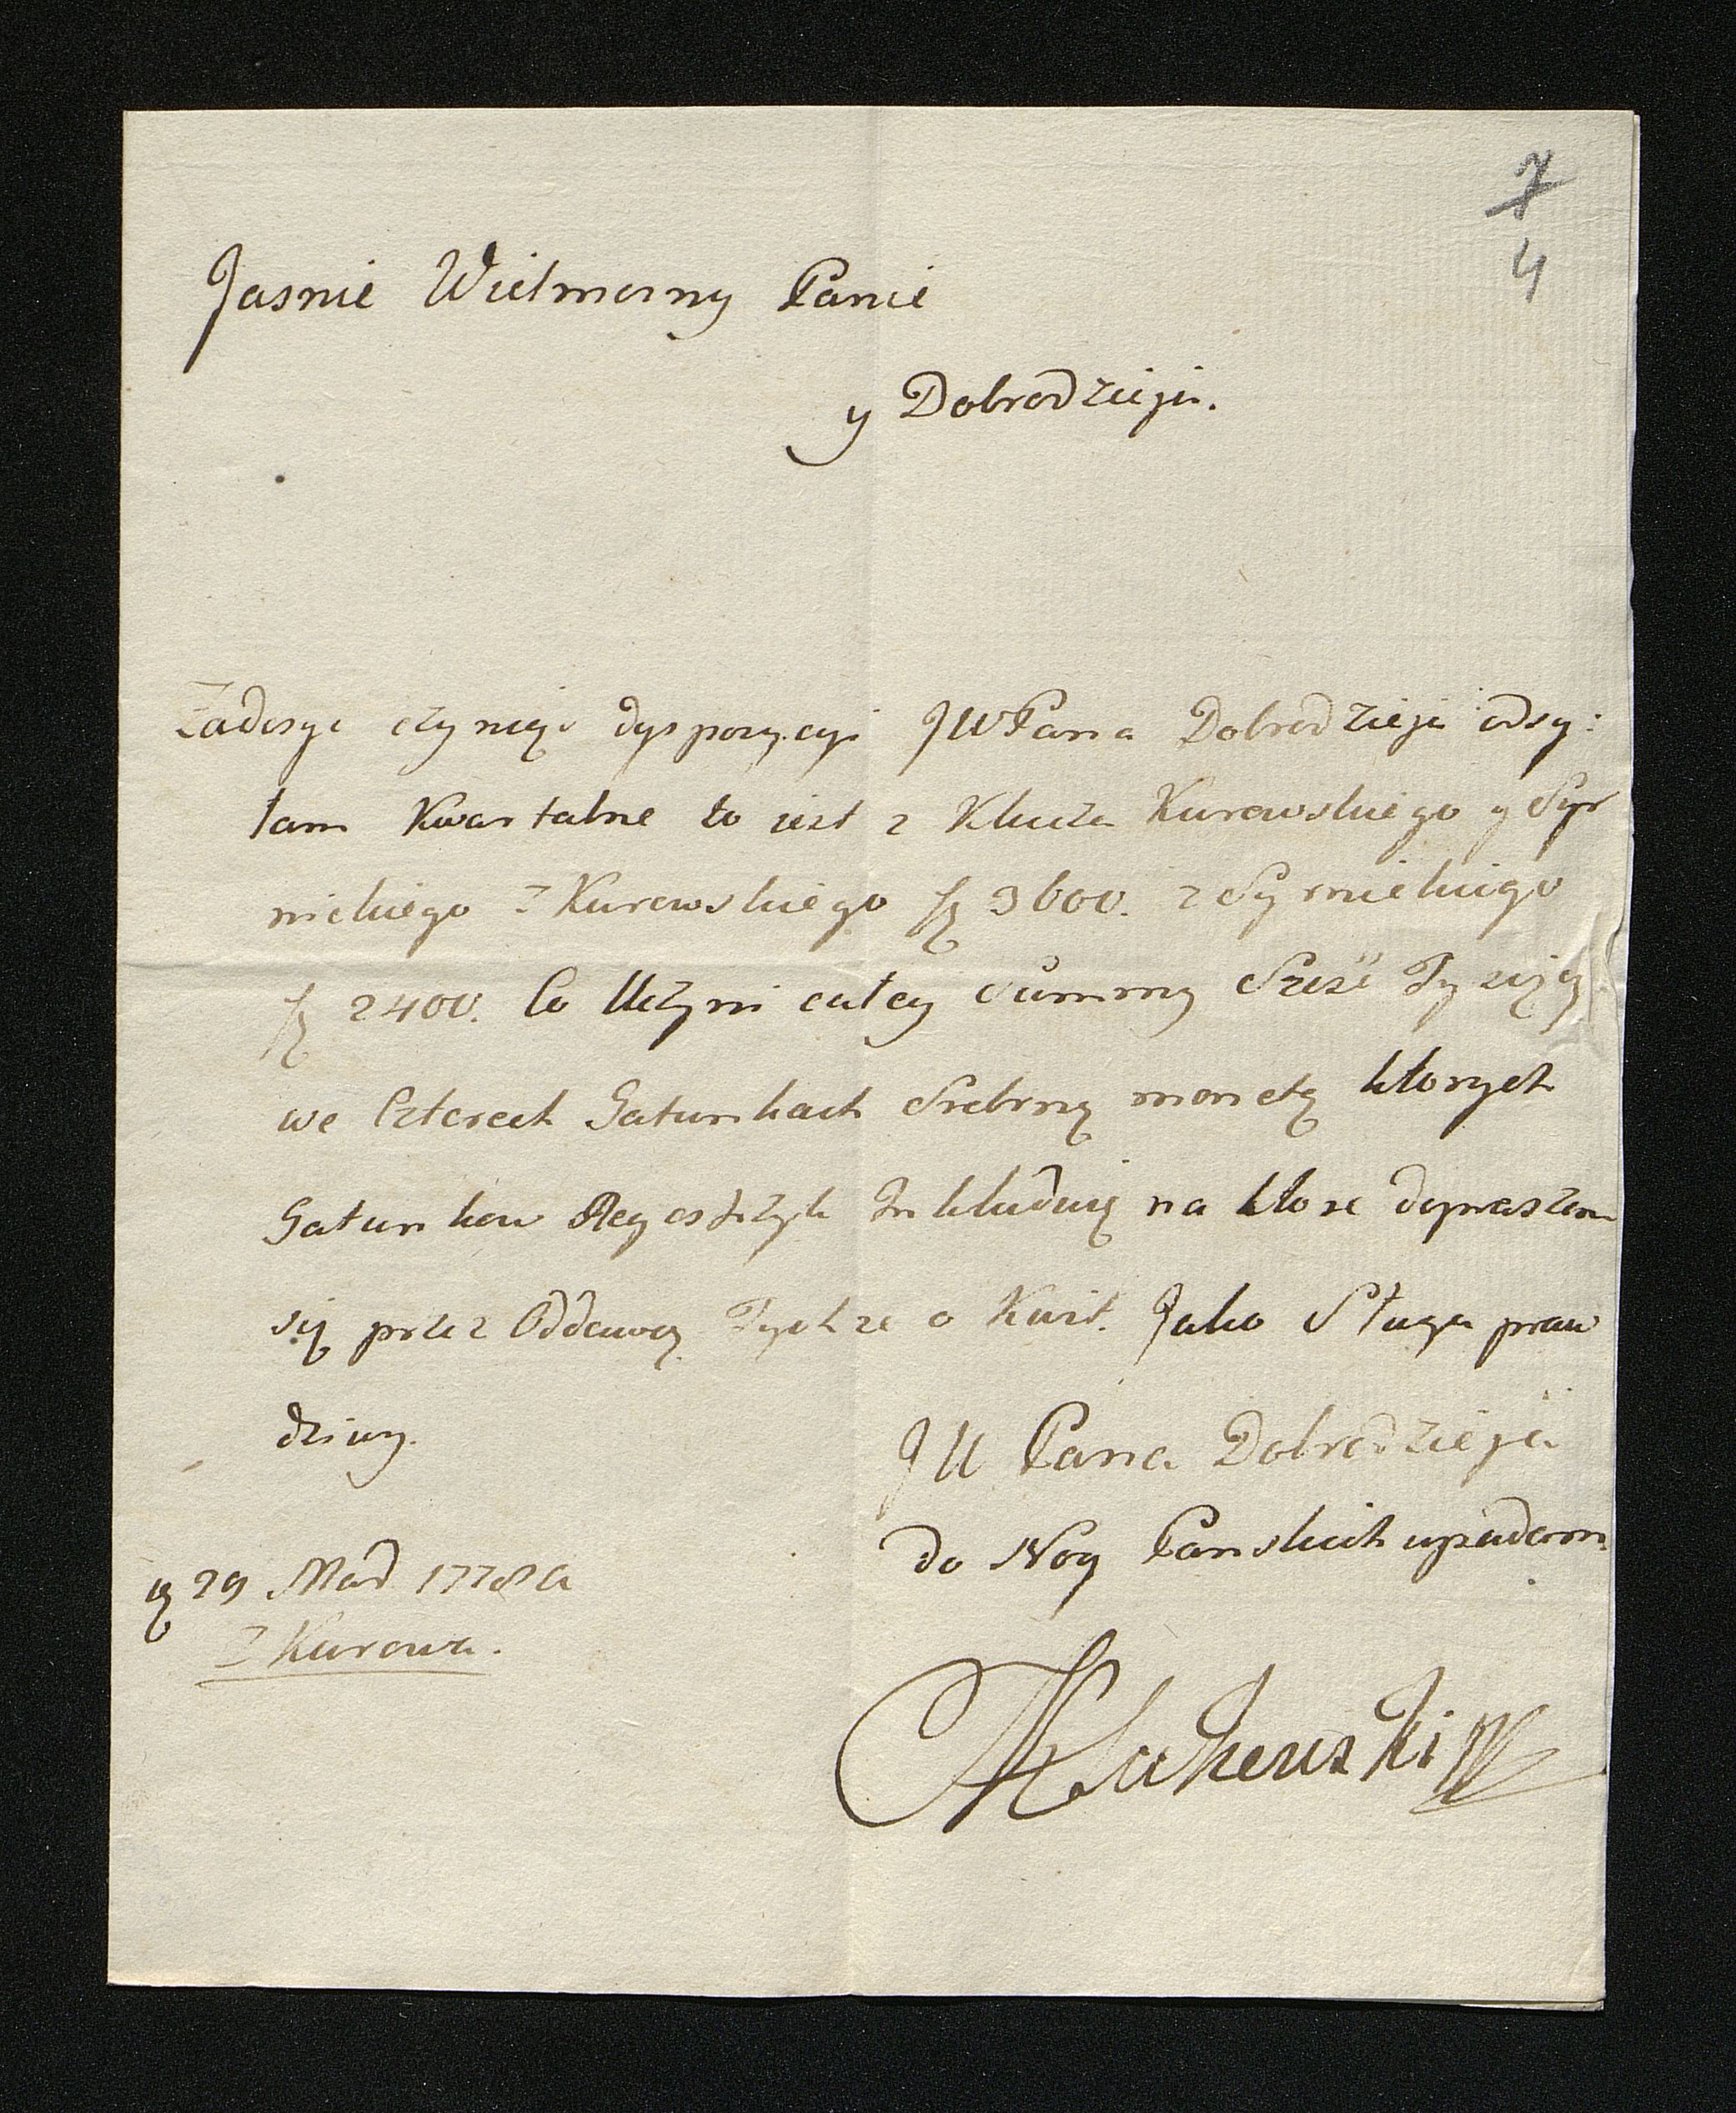 7
4
Jasnie Wielmozny Panie
y Dobrodzieju.
Zadosyc czyniąc dyspozycyi JWPana Dobrodzieja odsy:
łam Kwartalne to iest z Klucza Kurowskiego y Syr
nickiego z Kurowskiego fł 3600. z Syrnickiego
fł 2400. Co Uczyni całey Summy Szesc Tysięcy
we Czterech Gatunkach Srebrną monetą ktorych
Gatunkow Regestrzyk Inkluduię na ktore dopraszam
się przez Oddawcę Tychze o Kwit. Jako Sługa praw
dziwy.
JW Pana Dobrodzieja
do Nog Panskich upadam
29 1778
z Kurowa.